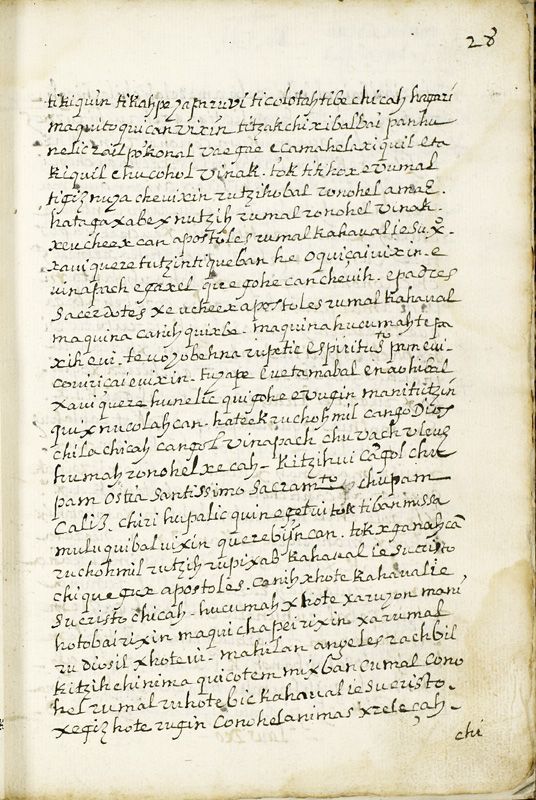 28
tikiquin tikahpe yapnruvi ticolotahtibe chicah hagari
maquitoquicanvixin titzakchi xibalbai panhu
nelic rail pokonal vaegre ecamahelaxiquil eta
kiquil ehucohol vinak. tok tikhoxe vumal
tigiz nuya chevixin rutzihobal ronohel amae.
hatagaxabex nutzih rumal ronohel vinak.
xeucheex can apostoles rumal kahaval iesu xo.
xavi quere tutzintiqueban he oquiçaivixin. e
vinapach egaxel quegohe can chevih. epadres
Sacerdotes xeucheex apostoles rumal kahaval
maquina canih quixbe. maquina hucumah tepa
xih evi. tevoyobehna rupetic espiritus to pan evi.
coviriçai evixin. tuyape levetamabal enaohibal
xavi quere hunelic quigohe evugin mani tutzin
quix nucolah can. hateek ruchohmil cango Dios
chila chicah cangol vinapach chuvach uleuz
humah ronohel xecah - kitzihvi cãgol chu
pam ostia santissimo sacramto. chupam
caliz. chiri hupalic quinegetvi tok tiban missa
muluquibal vixin querebijncan. tok xganahcã
ruchohmil rutzih rupixab kahaval iesucristo
chiquegux apostoles. canih xhote kahavalie
sucristo chicah. hucumah xhote xaruyon mani
hotobairixin maquichapeirixin xarumal
rudiosil xhotevi. mahilan angeles rachbil
kitzih chinima quicotem mixban cumal cono
hel rumal ruhotebic kahaval iesucristo.
xegiz hote rugin conohel animas xreleçah -
chi